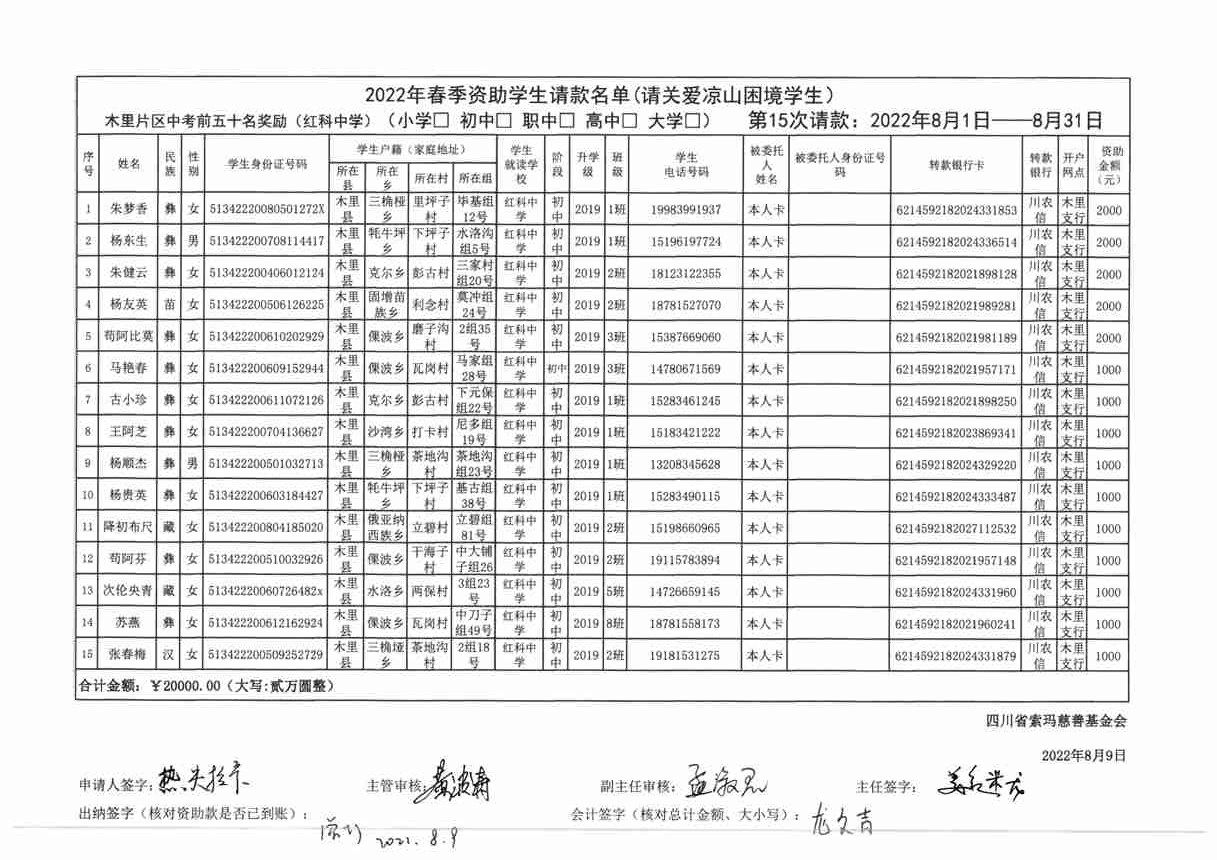 2022年春季资助学生请款名单(请关爱凉山困境学生)
木里片区中考前五十名奖励（红科中学）（小学□ 初中□ 职中□ 高中□ 大学□） 第15次请款：2022年8月1日——8月31日
序号 姓名 民族 性别 学生身份证号码 学生户籍（家庭地址） 学生就读学校 阶段 升学级 班级 学生电话号码 被委托人姓名 被委托人身份证号码 转款银行卡 转款银行 开户网点 资助金额（元）
所在县 所在乡 所在村 所在组
1 朱梦香 彝 女 51342220080501272X 木里县 三桷桠乡 里坪子村 毕基组12号 红科中学 初中 2019 1班 19983991937 本人卡 6214592182024331853 川农信 木里支行 2000
2 杨东生 彝 男 513422200708114417 木里县 牦牛坪乡 下坪子村 水洛沟组5号 红科中学 初中 2019 1班 15196197724 本人卡 6214592182024336514 川农信 木里支行 2000
3 朱健云 彝 女 513422200406012124 木里县 克尔乡 彭古村 三家村组20号 红科中学 初中 2019 2班 18123122355 本人卡 6214592182021898128 川农信 木里支行 2000
4 杨友英 苗 女 513422200506126225 木里县 固增苗族乡 利念村 莫冲组24号 红科中学 初中 2019 2班 18781527070 本人卡 6214592182021989281 川农信 木里支行 2000
5 苟阿比莫 彝 女 513422200610202929 木里县 倮波乡 磨子沟村 2组35号 红科中学 初中 2019 3班 15387669060 本人卡 6214592182021981189 川农信 木里支行 2000
6 马艳春 彝 女 513422200609152944 木里县 倮波乡 瓦岗村 马家组28号 红科中学 初中 2019 3班 14780671569 本人卡 6214592182021957171 川农信 木里支行 1000
7 古小珍 彝 女 513422200611072126 木里县 克尔乡 彭古村 下元保组22号 红科中学 初中 2019 1班 15283461245 本人卡 6214592182021898250 川农信 木里支行 1000
8 王阿芝 彝 女 513422200704136627 木里县 沙湾乡 打卡村 尼多组19号 红科中学 初中 2019 1班 15183421222 本人卡 6214592182023869341 川农信 木里支行 1000
9 杨顺杰 彝 男 513422200501032713 木里县 三桷桠乡 茶地沟村 茶地沟组23号 红科中学 初中 2019 1班 13208345628 本人卡 6214592182024329220 川农信 木里支行 1000
10 杨贵英 彝 女 513422200603184427 木里县 牦牛坪乡 下坪子村 基古组38号 红科中学 初中 2019 1班 15283490115 本人卡 6214592182024333487 川农信 木里支行 1000
11 降初布尺 藏 女 513422200804185020 木里县 俄亚纳西族乡 立碧村 立碧组81号 红科中学 初中 2019 2班 15198660965 本人卡 6214592182027112532 川农信 木里支行 1000
12 苟阿芬 彝 女 513422200510032926 木里县 倮波乡 干海子村 中大铺子组26 红科中学 初中 2019 2班 19115783894 本人卡 6214592182021957148 川农信 木里支行 1000
13 次伦央青 藏 女 51342220060726482x 木里县 水洛乡 两保村 3组23号 红科中学 初中 2019 5班 14726659145 本人卡 6214592182024331960 川农信 木里支行 1000
14 苏燕 彝 女 513422200612162924 木里县 倮波乡 瓦岗村 中刀子组49号 红科中学 初中 2019 8班 18781558173 本人卡 6214592182021960241 川农信 木里支行 1000
15 张春梅 汉 女 513422200509252729 木里县 三桷垭乡 茶地沟村 2组18号 红科中学 初中 2019 2班 19181531275 本人卡 6214592182024331879 川农信 木里支行 1000
合计金额：￥20000.00（大写:贰万圆整）
四川省索玛慈善基金会
2022年8月9日
申请人签字： 主管审核： 副主任审核： 主任签字：
出纳签字（核对资助款是否已到账）： 会计签字（核对总计金额、大小写）： 龙久吉
2022.8.9